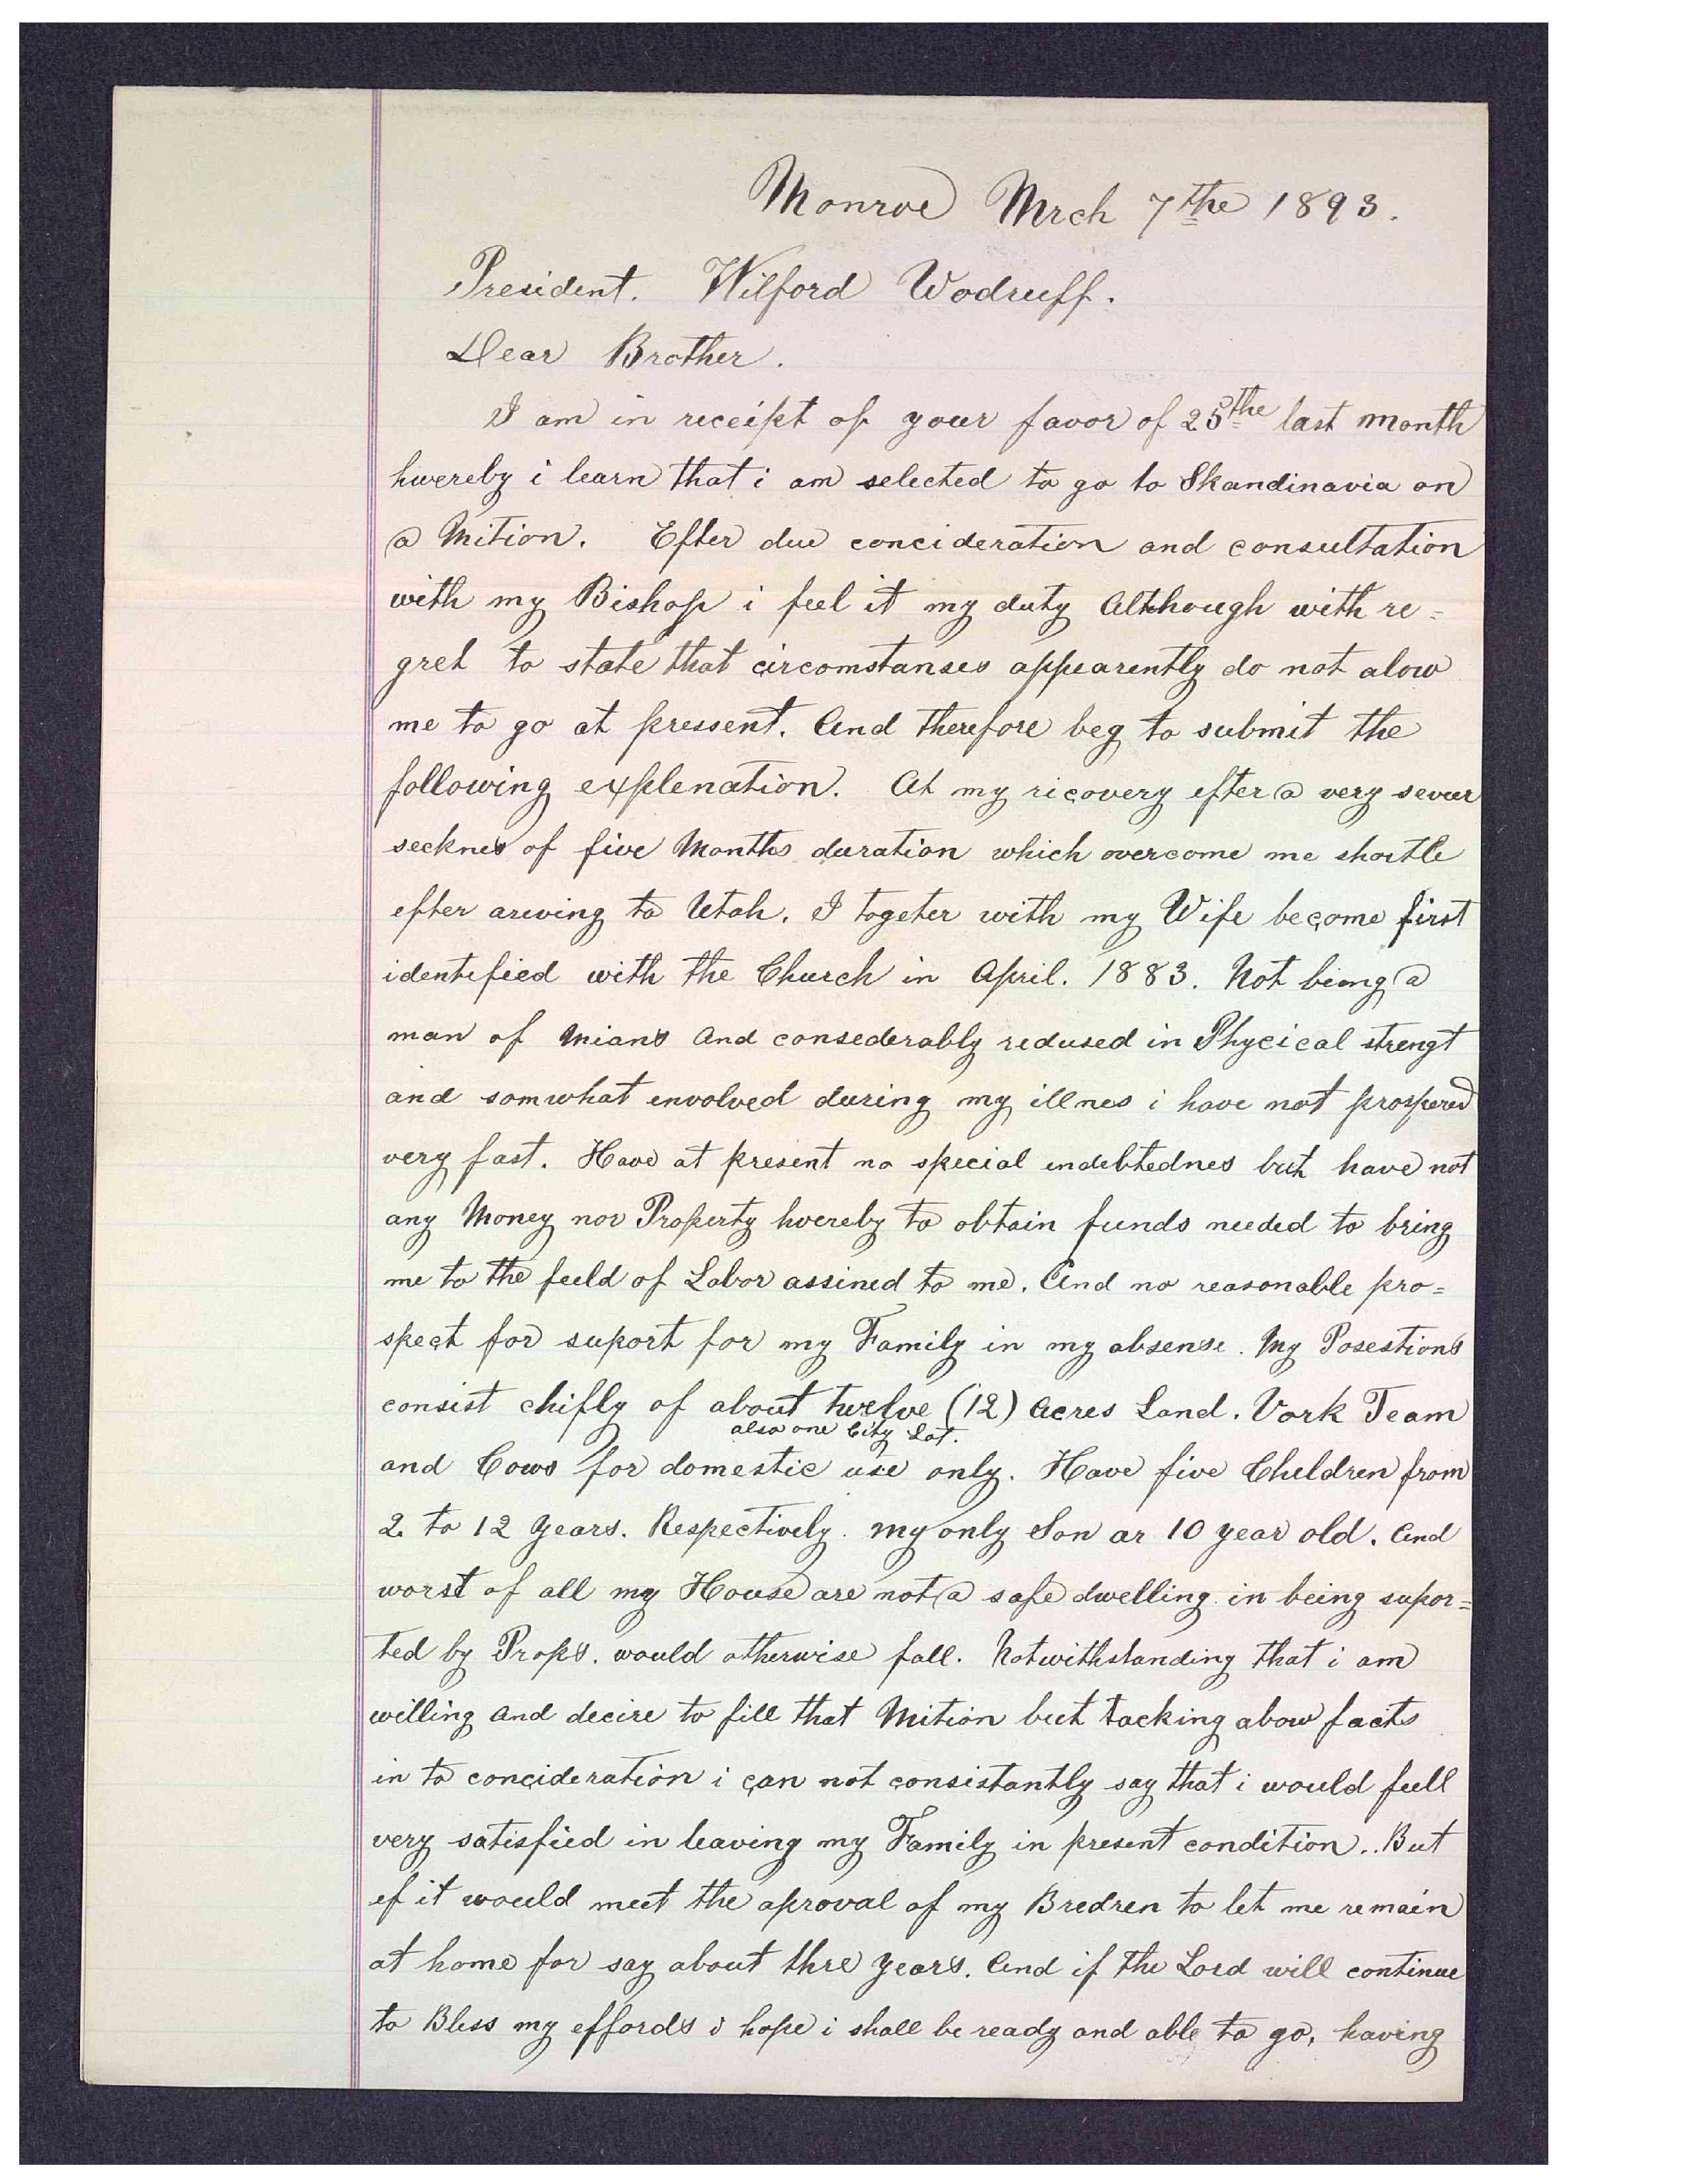 Monroe Mrch 7the 1893.
President. Wilford Wodruff.
Dear Brother.
I am in receipt of your favor of 25the last month
hwereby i learn that i am selected to go to Skandinavia on
a Mition. Efter due concideration and consultation
with my Bishop i feel it my duty Although with re=
gret to state that circomstanses appearently do not alow
me to go at pressent. And therefore beg to submit the
following explenation. At my ricovery efter a very sever
seeknes of five Months duration which overcome me shortle
efter areving to Utah. I togeter with my Wife become first
identefied with the Church in April. 1883. Not being a
man of mians and consederably redused in Phycical strengt
and somwhat envolved during my illnes i have not prospered
very fast. Have at present no special endebtednes but have not
any Money nor Property hvereby to obtain funds needed to bring
me to the feeld of Labor assined to me. And no reasonable pro=
spect for suport for my Family in my absense. My Posestions
consist chifly of about twelve (12) Acres Land. Vork Team
also one City Lot.
and Cows for domestic use only. Have five Cheldren from
2 to 12 years. Respectively. my only Son ar 10 year old. And
worst of all my House are not a safe dwelling in being supor=
ted by Props. would otherwise fall. Notwithstanding that i am
willing and decire to fill that Mition but tacking abow facts
in to concideration i can not consistantly say that i would feell
very satisfied in leaving my Family in present condition.. But
ef it would meet the aproval of my Bredren to let me remain
at home for say about thre years. And if the Lord will continue
to Bless my effords i hope i shall be ready and able to go, having